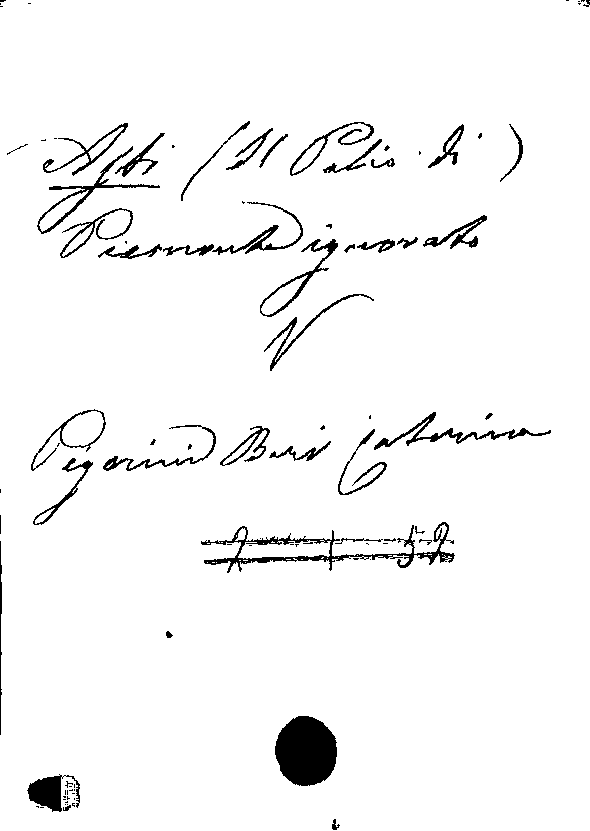 Asti (Il Palio di)
Piemonte ignorato
V
Pigorini Beri Caterina
7 | 52